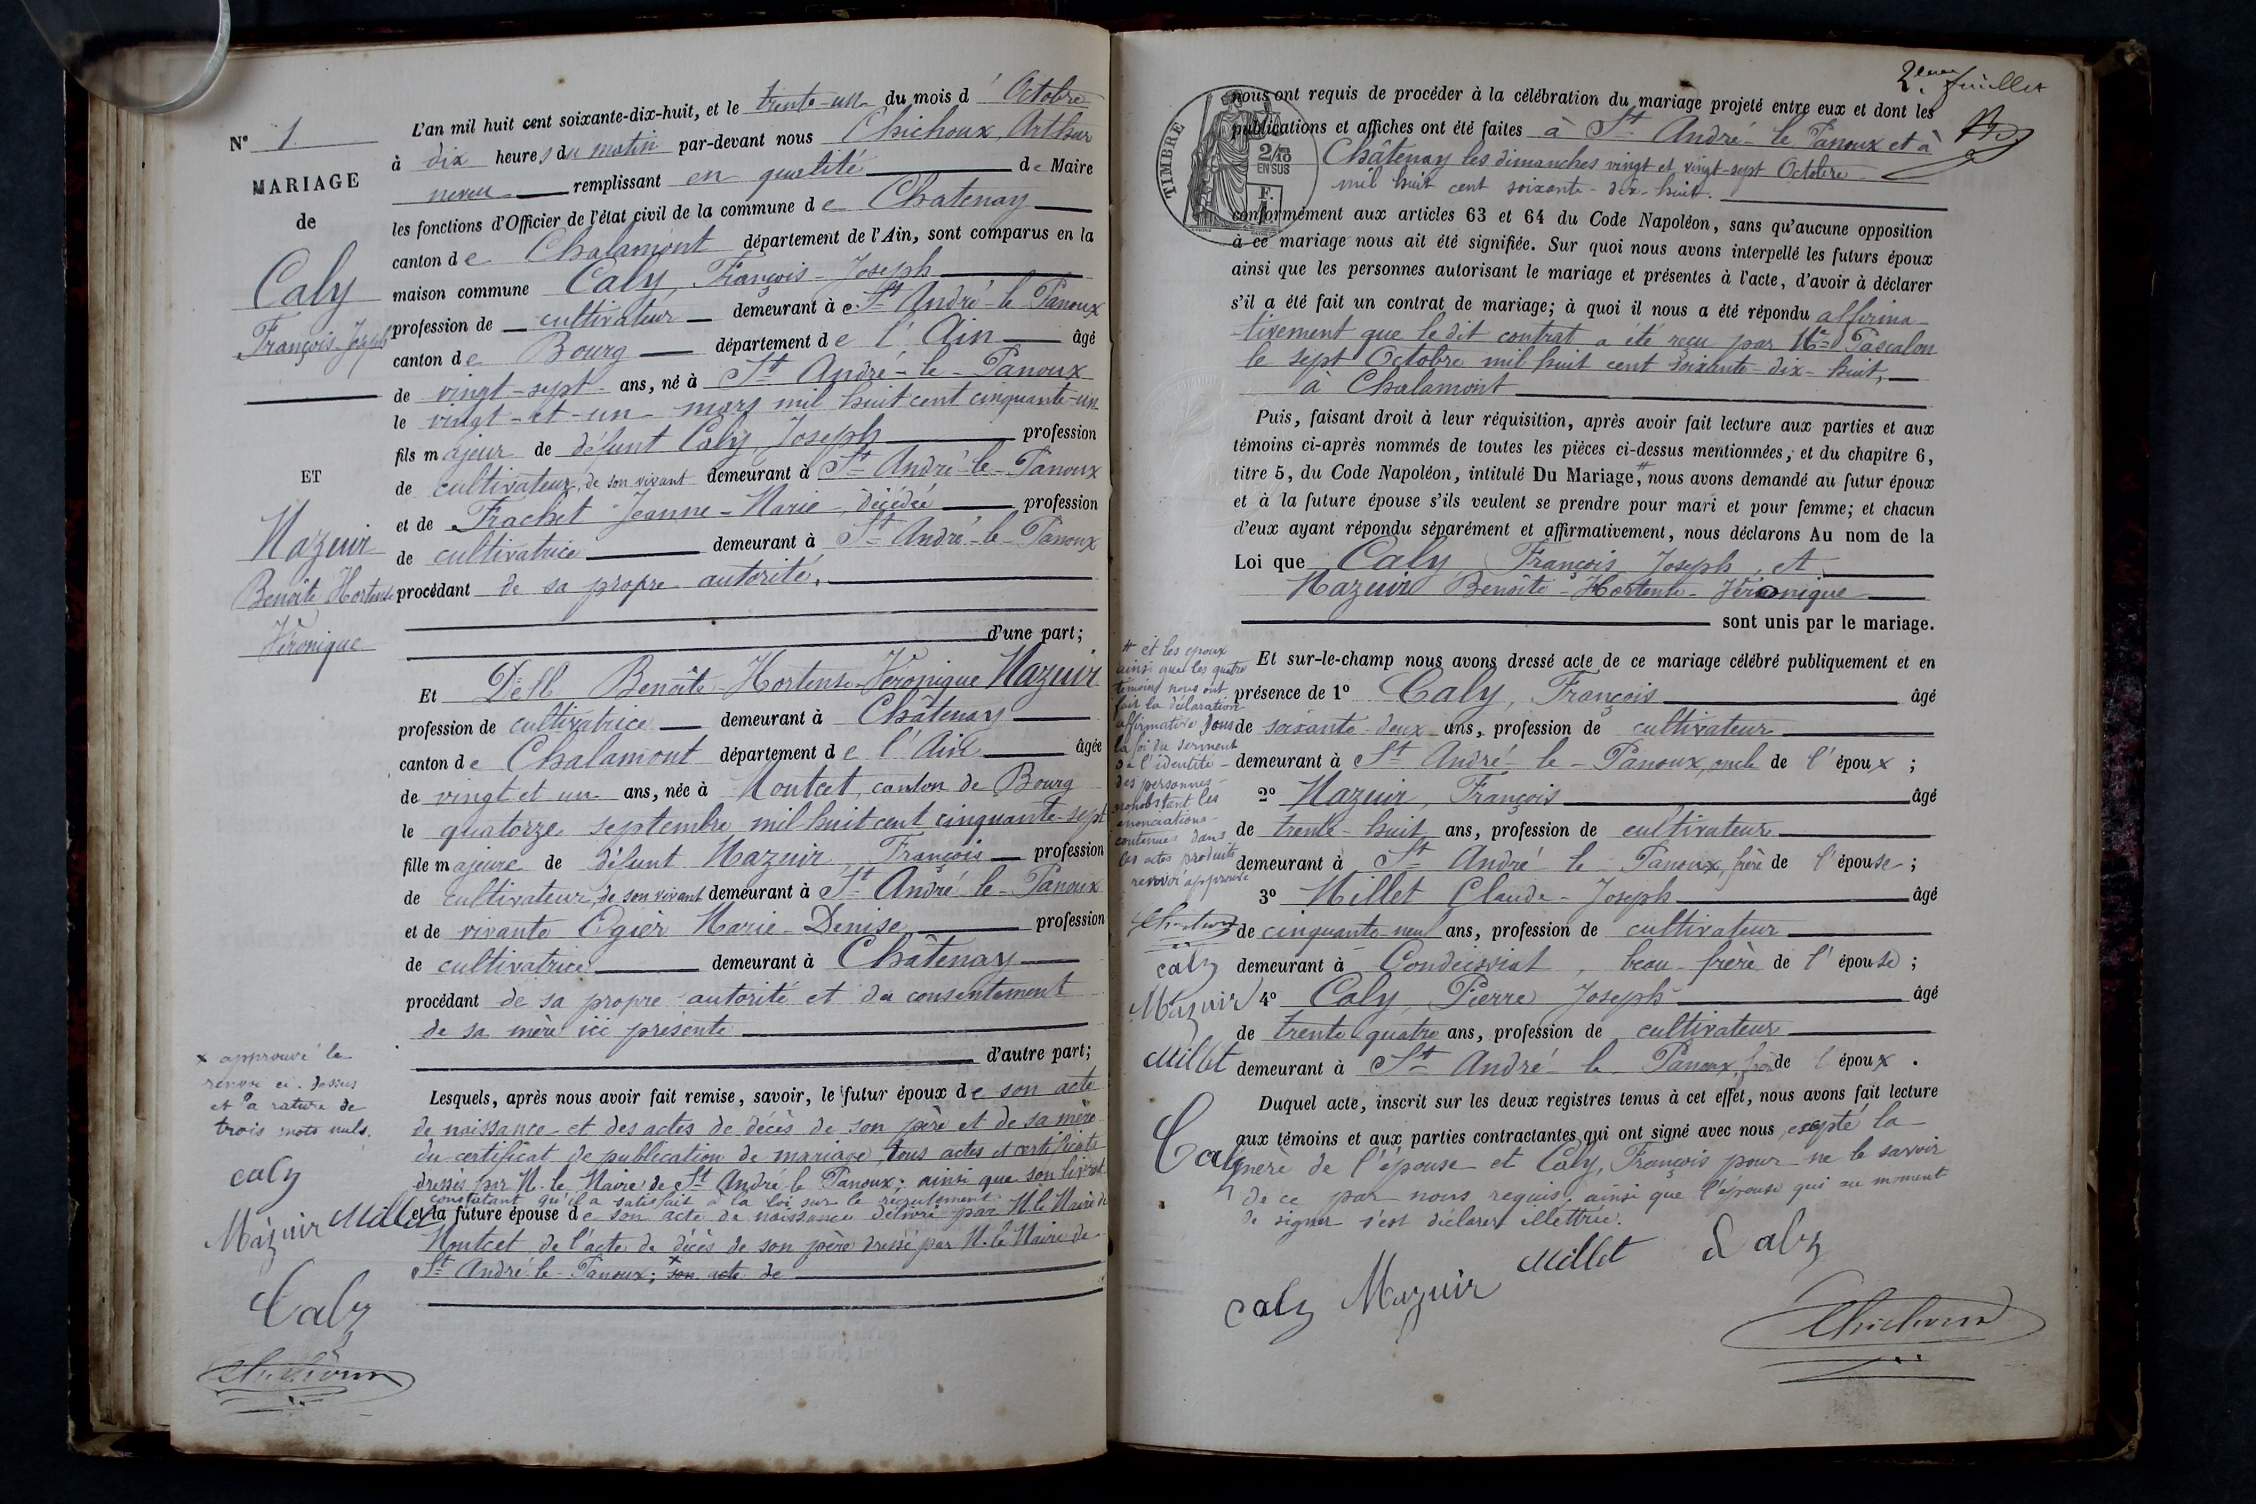 N° 1
MARIAGE
de
Caly
François Joseph
ET
Mazuir
Benoîte Hortense
Véronique
L'an mil huit cent soixante-dix-huit, et le trente-un du mois d'Octobre
à dix heures du matin par-devant nous Chichoux, Arthur
neveu remplissant en qualité de Maire
les fonctions d'Officier de l'état civil de la commune de Chatenay
canton de Chalamont département de l'Ain, sont comparus en la
maison commune Caly, François-Joseph
profession de cultivateur demeurant à St André-le-Panoux
canton de Bourg département de l'Ain âgé
de vingt-sept ans, né à St André-le-Panoux
le vingt-et-un mars mil huit cent cinquante-un
fils majeur de défunt Caly, Joseph profession
de cultivateur, de son vivant demeurant à St André-le-Panoux
et de Frachet Jeanne-Marie, décédée profession
de cultivatrice demeurant à St André-le-Panoux
procédant de sa propre autorité,
d'une part;
Et Delle Benoîte-Hortense-Véronique Mazuir
profession de cultivatrice demeurant à Châtenay
canton de Chalamont département de l'Ain âgée
de vingt et un ans, née à Montcet, canton de Bourg
le quatorze septembre mil huit cent cinquante-sept
fille majeure de défunt Mazuir, François profession
de cultivateur, de son vivant demeurant à St André-le-Panoux
et de vivante Ogier Marie-Denise profession
de cultivatrice demeurant à Châtenay
procédant de sa propre autorité et du consentement
de sa mère ici présente
d'autre part;
Lesquels, après nous avoir fait remise, savoir, le futur époux de son acte
de naissance et des actes de décès de son père et de sa mère
du certificat de publication de mariage, tous actes et certificats
dressés par M. le Maire de St André-le-Panoux; ainsi que son livret
constatant qu'il a satisfait à la loi sur le recrutement
et la future épouse de son acte de naissance délivré par M. le Maire de
Montcet de l'acte de décès de son père dressé par M. le Maire de
St André-le-Panoux; x son acte de
x approuvé le
renvoi ci-dessus
et la rature de
trois mots nuls.
caly
Mazuir Millet
Caly
Chichoux
2eme feuillet
TIMBRE
2/10
EN SUS
F.
nous ont requis de procéder à la célébration du mariage projeté entre eux et dont les
publications et affiches ont été faites à St André-le-Panoux et à
Châtenay les dimanches vingt et vingt-sept Octobre
mil huit cent soixante-dix-huit.
conformément aux articles 63 et 64 du Code Napoléon, sans qu'aucune opposition
à ce mariage nous ait été signifiée. Sur quoi nous avons interpellé les futurs époux
ainsi que les personnes autorisant le mariage et présentes à l'acte, d'avoir à déclarer
s'il a été fait un contrat de mariage; à quoi il nous a été répondu affirma-
tivement que le dit contrat a été reçu par Me Pascalon
le sept Octobre mil huit cent soixante-dix-huit,
à Chalamont
Puis, faisant droit à leur réquisition, après avoir fait lecture aux parties et aux
témoins ci-après nommés de toutes les pièces ci-dessus mentionnées, et du chapitre 6,
titre 5, du Code Napoléon, intitulé Du Mariage, # nous avons demandé au futur époux
et à la future épouse s'ils veulent se prendre pour mari et pour femme; et chacun
d'eux ayant répondu séparément et affirmativement, nous déclarons Au nom de la
Loi que Caly, François Joseph, et
Mazuir Benoîte-Hortense-Véronique
sont unis par le mariage.
Et sur-le-champ nous avons dressé acte de ce mariage célébré publiquement et en
présence de 1° Caly, François âgé
de soixante-deux ans, profession de cultivateur
demeurant à St André-le-Panoux, oncle de l'époux;
2° Mazuir, François âgé
de trente-huit ans, profession de cultivateur
demeurant à St André le Panoux, frère de l'épouse;
3° Millet Claude-Joseph âgé
de cinquante-neuf ans, profession de cultivateur
demeurant à Condeissiat, beau-frère de l'épouse;
4° Caly Pierre Joseph âgé
de trente quatre ans, profession de cultivateur
demeurant à St André le Panoux, frère de l'époux.
Duquel acte, inscrit sur les deux registres tenus à cet effet, nous avons fait lecture
aux témoins et aux parties contractantes qui ont signé avec nous, excepté la
mère de l'épouse et Caly, François pour ne le savoir
de ce par nous requis, ainsi que l'épouse qui au moment
de signer s'est déclarée illettrée.
# et les époux
ainsi que les quatre
témoins nous ont
fait la déclaration
affirmative sous
la foi du serment
de l'identité
des personnes
nonobstant les
énonciations
contenues dans
les actes produits
renvoi approuvé
Chichoux
caly
Mazuir
Millet
Caly
caly Mazuir Millet Caly
Chichoux